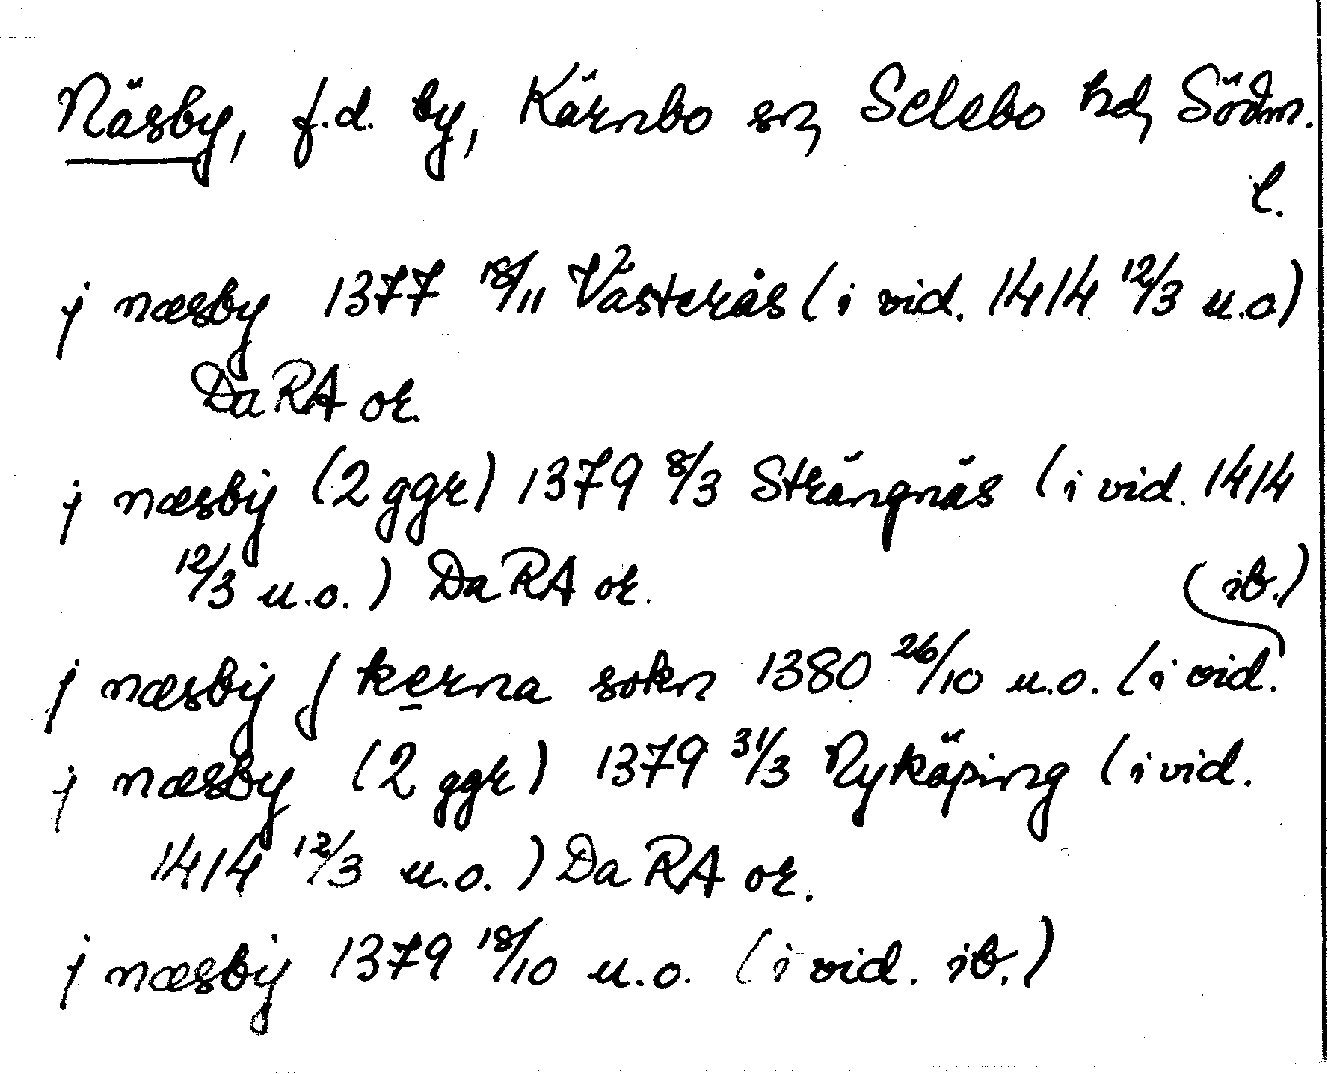 Näsby, f.d. by, Kärnbo sn, Selebo hd, Södm.
l.
j næsby 1377 18/11 Västerås (i vid. 1414 12/3 u.o)
DaRA or.
j næsbÿ (2 ggr) 1379 8/3 Strängnäs (i vid. 1414
12/3 u.o.) DaRA or. (ib.)
j næsbÿ j kerna sokn 1380 26/10 u.o. (i vid.
j næsby (2 ggr) 1379 31/3 Nyköping (i vid.
1414 12/3 u.o.) DaRA or.
j næsbÿ 1379 18/10 u.o. (i vid. ib.)